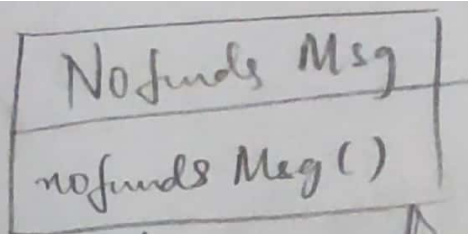 Nofunds Msg
nofunds Msg()